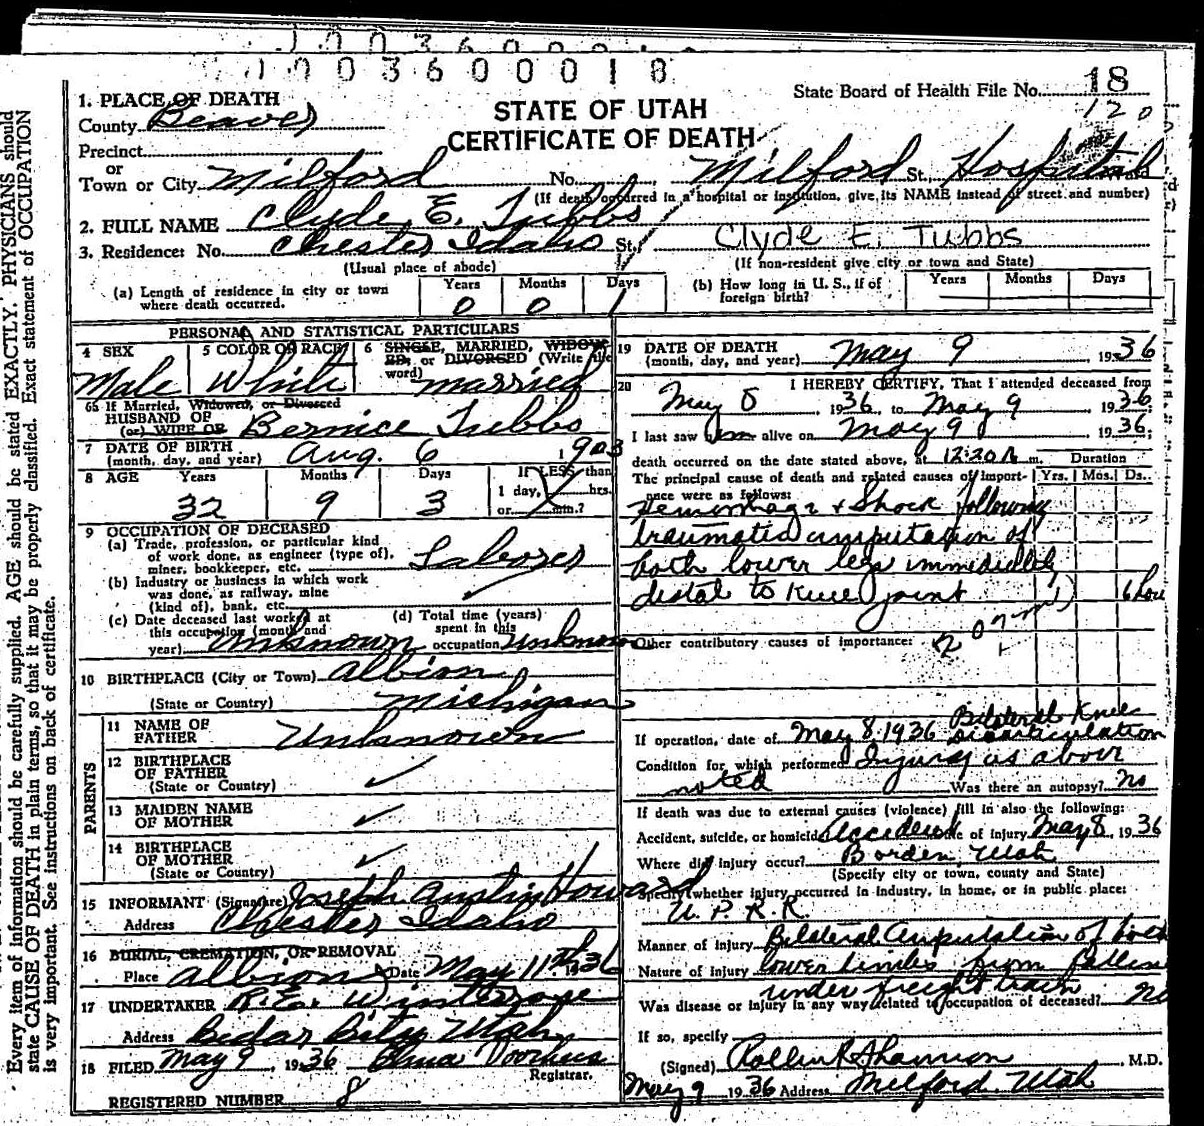 1 0 0 3 6 0 0 0 1 8
State Board of Health File No. 18
120
STATE OF UTAH
CERTIFICATE OF DEATH
1. PLACE OF DEATH
County Beaver
Precinct
or
Town or City Milford No. Milford St. Hospital
(If death occurred in a hospital or institution, give its NAME instead of street and number)
2. FULL NAME Clyde E. Tubbs
3. Residence: No. Chester Idaho St. Clyde E. Tubbs
(Usual place of abode) (If non-resident give city or town and State)
(a) Length of residence in city or town where death occurred. Years 0 Months 0 Days 1
(b) How long in U. S., if of foreign birth? Years Months Days
PERSONAL AND STATISTICAL PARTICULARS
4 SEX Male
5 COLOR OR RACE White
6 SINGLE, MARRIED, WIDOWED, or DIVORCED (Write the word) married
6a If Married, Widowed, or Divorced
HUSBAND OF
(or) WIFE OF Bernice Tubbs
7 DATE OF BIRTH
(month, day, and year) Aug. 6 1903
8 AGE Years 32 Months 9 Days 3 If LESS than 1 day, hrs. or min.?
9 OCCUPATION OF DECEASED
(a) Trade, profession, or particular kind
of work done, as engineer (type of),
miner, bookkeeper, etc. Laborer
(b) Industry or business in which work
was done, as railway, mine
(kind of), bank, etc.
(c) Date deceased last worked at
this occupation (month and
year) Unknown
(d) Total time (years)
spent in this
occupation Unknown
10 BIRTHPLACE (City or Town) Albion
(State or Country) Michigan
PARENTS
11 NAME OF
FATHER Unknown
12 BIRTHPLACE
OF FATHER
(State or Country)
13 MAIDEN NAME
OF MOTHER
14 BIRTHPLACE
OF MOTHER
(State or Country)
15 INFORMANT (Signature) Joseph Austin Howard
Address Chester Idaho
16 BURIAL, CREMATION, OR REMOVAL
Place Albion Date May 11th 1936
17 UNDERTAKER
Address Cedar City Utah
18 FILED May 9, 1936 Alma Voorhees
Registrar.
REGISTERED NUMBER 8
19 DATE OF DEATH
(month, day, and year) May 9 1936
20 I HEREBY CERTIFY, That I attended deceased from
May 8, 1936, to May 9 1936;
I last saw him alive on May 9 1936;
death occurred on the date stated above, at 12:20 A m. Duration
The principal cause of death and related causes of importance were as follows: Yrs. Mos. Ds.
Hemorrhage & Shock following
traumatic amputation of
both lower legs immediately
distal to knee joint 6 hou
Other contributory causes of importance:
If operation, date of May 8, 1936 Bilateral Knee
disarticulation
Condition for which performed Injury as above
noted Was there an autopsy? No
If death was due to external causes (violence) fill in also the following:
Accident, suicide, or homicide Accident Date of injury May 8, 1936
Where did injury occur? Borden, Utah
(Specify city or town, county and State)
Specify whether injury occurred in industry, in home, or in public place:
U. P. R. R.
Manner of injury Bilateral Amputation of both
Nature of injury lower limbs from falling
under freight train
Was disease or injury in any way related to occupation of deceased? No
If so, specify
(Signed) Rollin R Shannon M.D.
May 9 1936 Address Milford, Utah
Every item of information should be carefully supplied. AGE should be stated EXACTLY. PHYSICIANS should
state CAUSE OF DEATH in plain terms, so that it may be properly classified. Exact statement of OCCUPATION
is very important. See instructions on back of certificate.